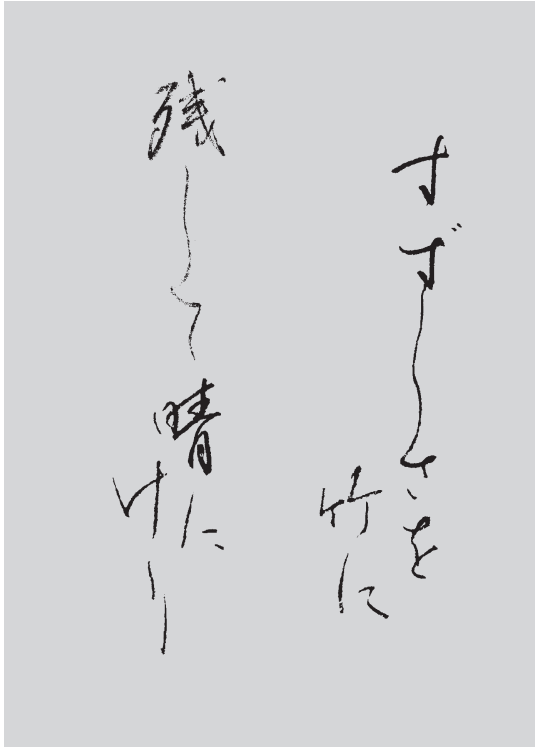 すずしさを
竹に
残して晴に
けり